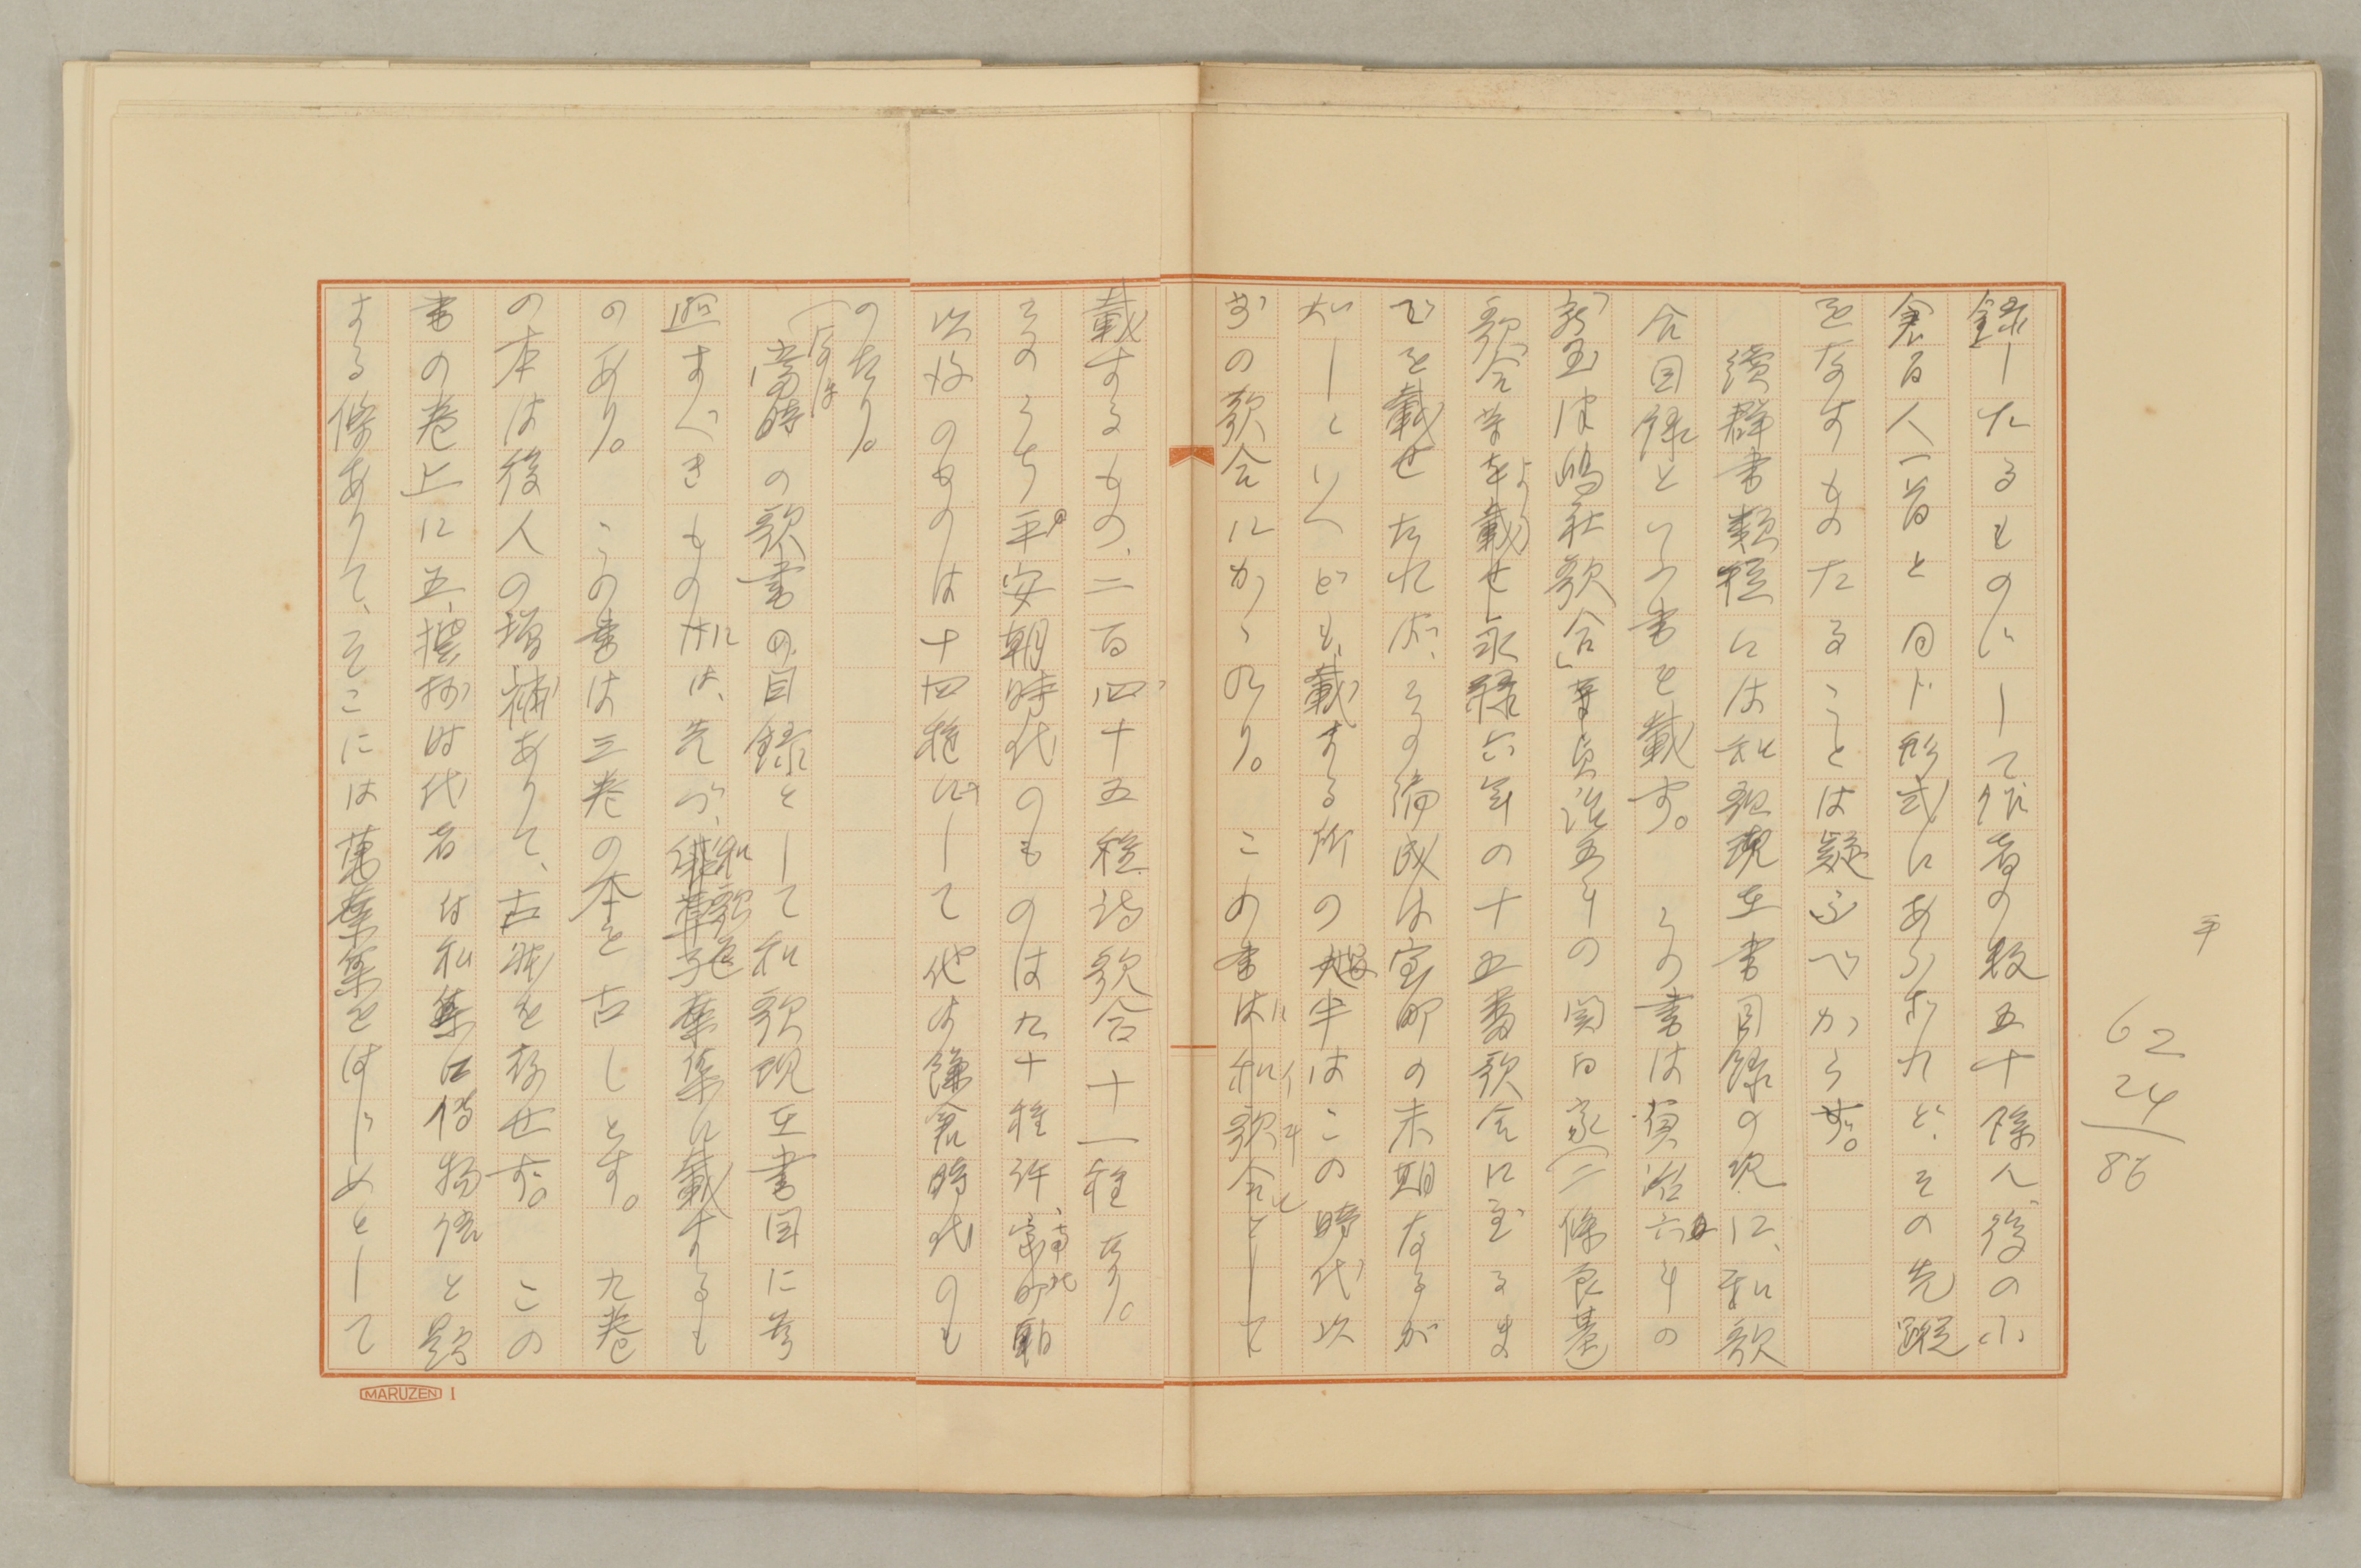 録したるものにして作者の数五十餘人、後の小
倉百人一首と同じ形式にあらざれど、その先蹤
をなすものたることは疑ふべからず。
續群書類従には和歌現在書目録の次に、和歌
合目録といふ書を載す。この書は貞治六年の
「新玉津嶋社歌合」
貞治五年の関白家(二條良基
歌合等より
永禄六年の十五番歌合に至るま
でを載せたれば、その編成は室町の末期なるが
如しといへども、載する所の大半はこの時代以
前の歌合にかゝれり。この書に和歌合として
載するもの、二百四十五種詩歌合十一種あり。
そのうち平安朝時代のものは九十種許、
以後のものは十四種にして他は鎌倉時代のも
のたり。
(なほ
當時の歌書の目録として和歌現在書目に参
照すべきものには、先づ、和歌色葉集に載するも
のあり。この書は三巻の本を古しとす。九巻
の本は後人の増補ありて、古躰を存せず。この
書の巻上に五、撰抄時代者付私集口傳物語と題
する條ありて、そこには萬葉集をはじめとして
62
24
86
MARUZEN 1